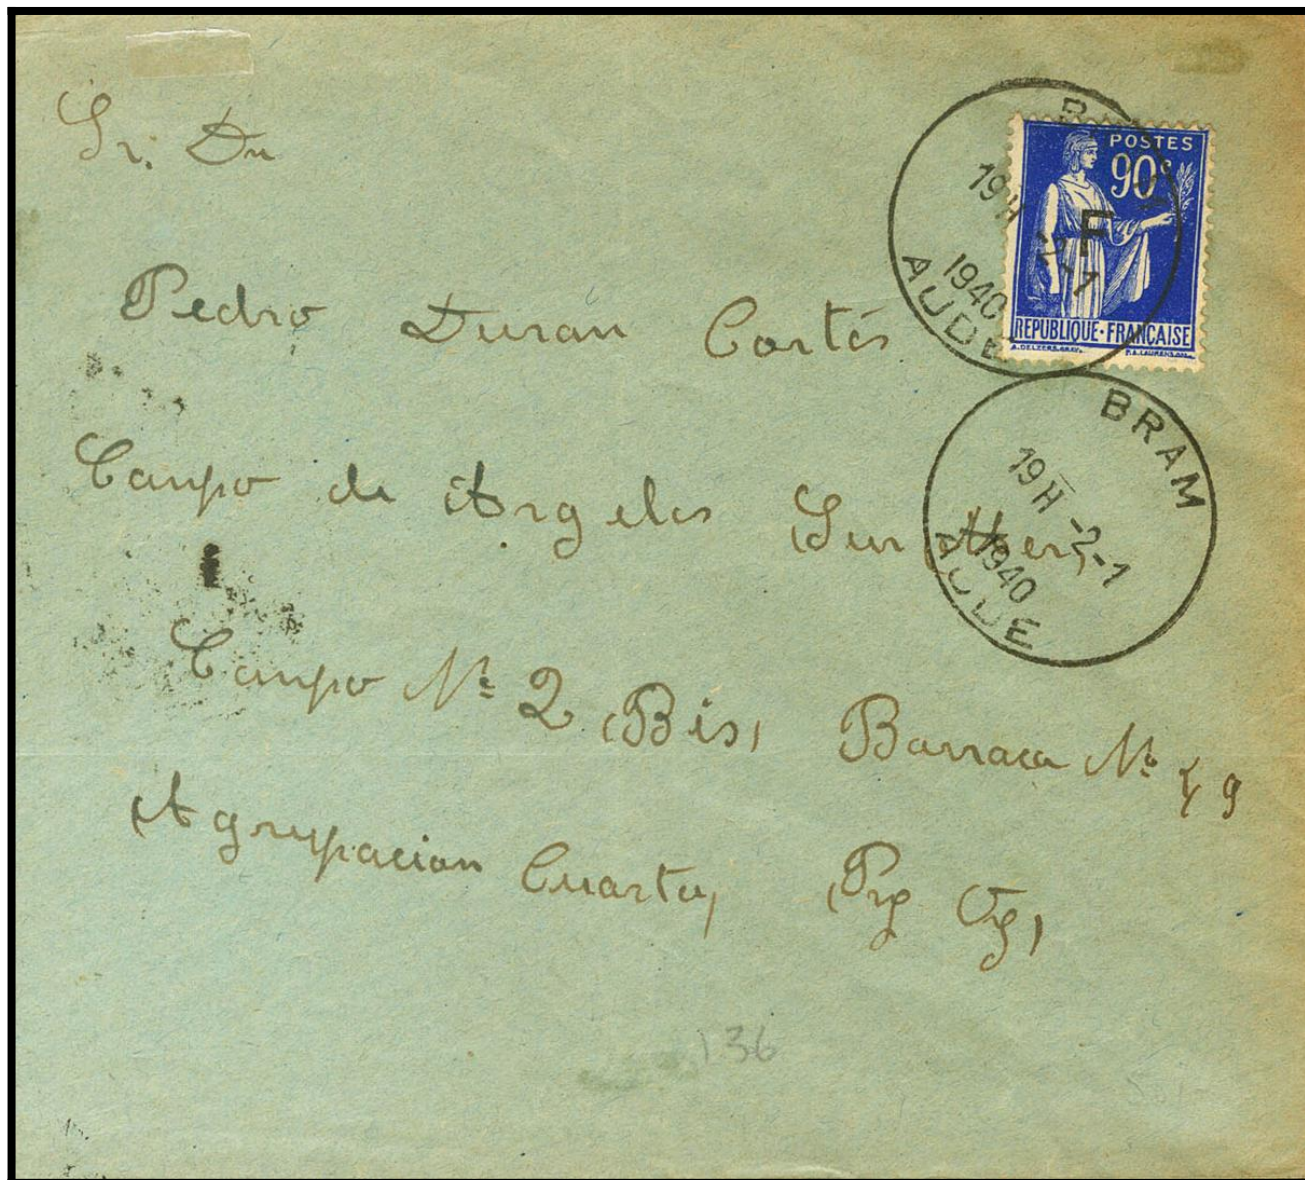 Sr. Dn
Pedro Duran Cortés
Campo de Argeles Sur Mer,
Campo Nº 2 (Bis) Barraca Nº 49
Agrupacion Cuarta,
POSTES
90c
F
REPUBLIQUE·FRANÇAISE
19H -2-1
1940
AUDE
BRAM
19H -2-1
1940
AUDE
136